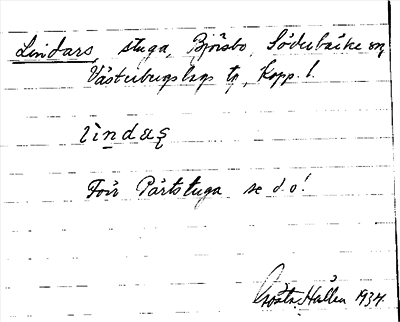 Lindars, stuga, Björsbo, Söderbärke sn
Västerbergslags tg, Kopp. l.
lindaṣ
För Pärtstuga se d.o!
Gösta Hallén 1934